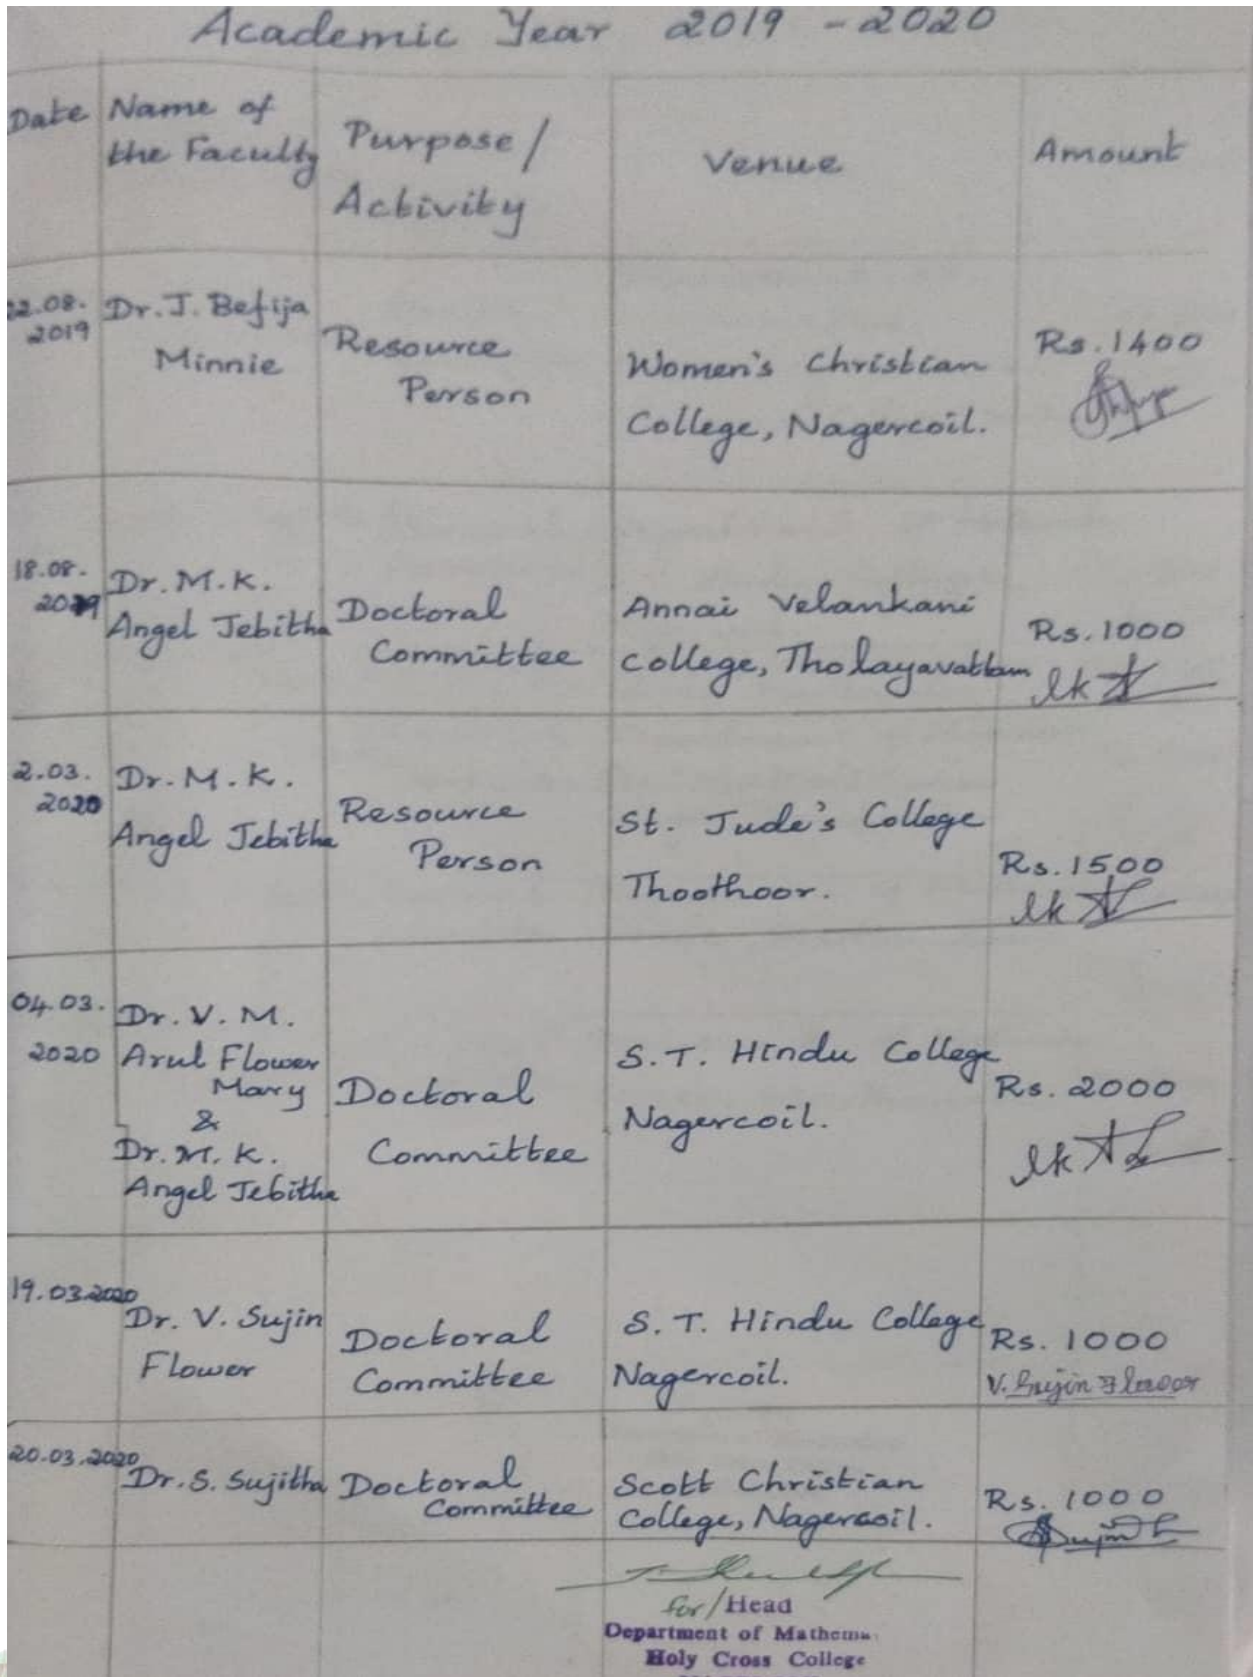 Academic Year 2019 - 2020
Date
Name of
the Faculty
Purpose /
Activity
Venue
Amount
22.08.
2019
Dr. J. Befija
Minnie
Resource
Person
Women's Christian
College, Nagercoil.
Rs. 1400
18.08.
2019
Dr. M. K.
Angel Jebitha
Doctoral
Committee
Annai Velankani
College, Tholayavattam
Rs. 1000
2.03.
2020
Dr. M. K.
Angel Jebitha
Resource
Person
St. Jude's College
Thoothoor.
Rs. 1500
04.03.
2020
Dr. V. M.
Arul Flower
Mary
&
Dr. M. K.
Angel Jebitha
Doctoral
Committee
S. T. Hindu College
Nagercoil.
Rs. 2000
19.03.2020
Dr. V. Sujin
Flower
Doctoral
Committee
S. T. Hindu College
Nagercoil.
Rs. 1000
V. Sujin Flower
20.03.2020
Dr. S. Sujitha
Doctoral
Committee
Scott Christian
College, Nagercoil.
Rs. 1000
for / Head
Department of
Holy Cross College